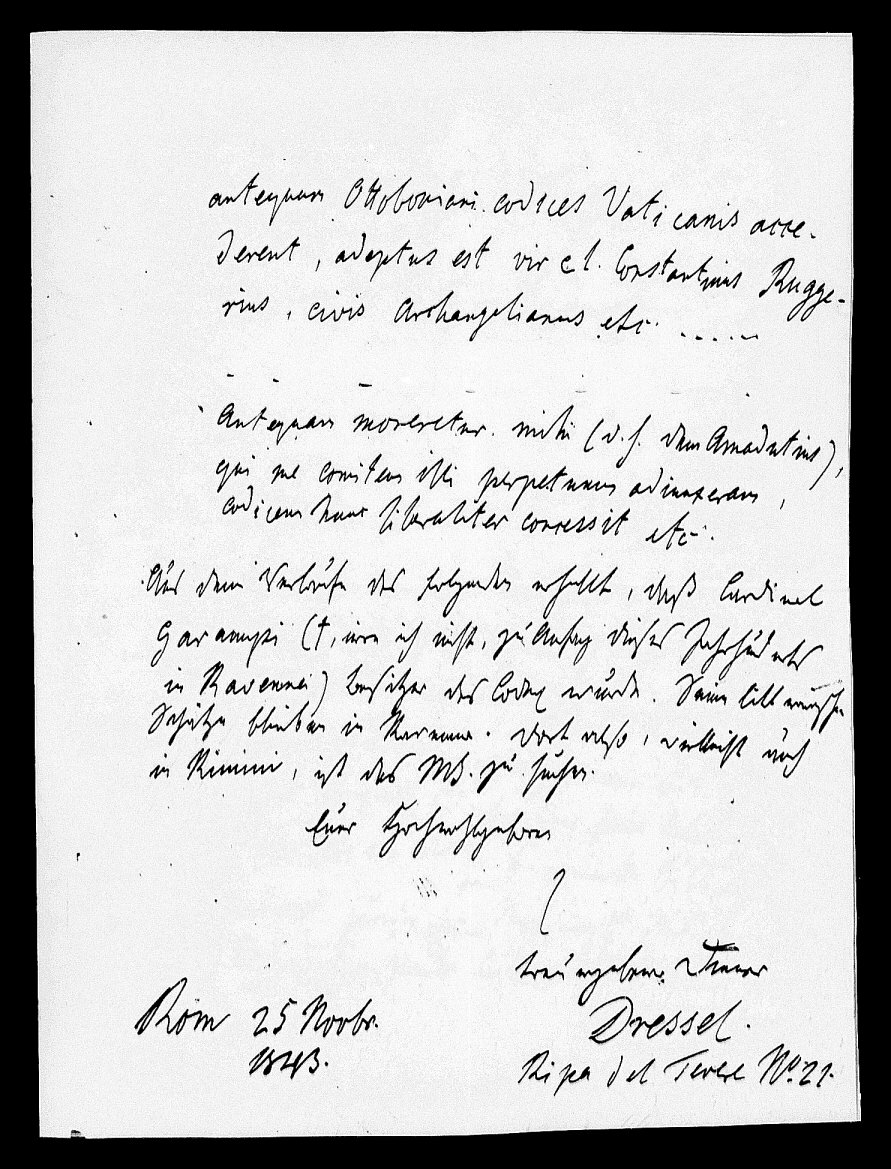 antequam Ottoboniani codices Vaticanis acce-
derent, adeptus est vir cl. Constantinus Rugge-
rius, civis Archangelianus etc. .....
Antequam moreretur mihi (d. h. dem Amadutius),
qui me comitem illi perpetuum adiunxeram,
codicem hunc liberaliter concessit etc.
Aus dem Verlaufe des folgenden erhellt, daß Cardinal
Garampi (†, irre ich nicht, zu Anfang dieses Jahrhunderts
in Ravenna) Besitzer des Codex wurde. Seine litterarischen
Schätze blieben in Ravenna. Dort also, vielleicht auch
in Rimini, ist das MS. zu suchen.
Euer Hochwohlgeboren
treu ergebener Diener
Rom 25 Novbr. Dressel.
1843. Ripa del Tevere No. 21.